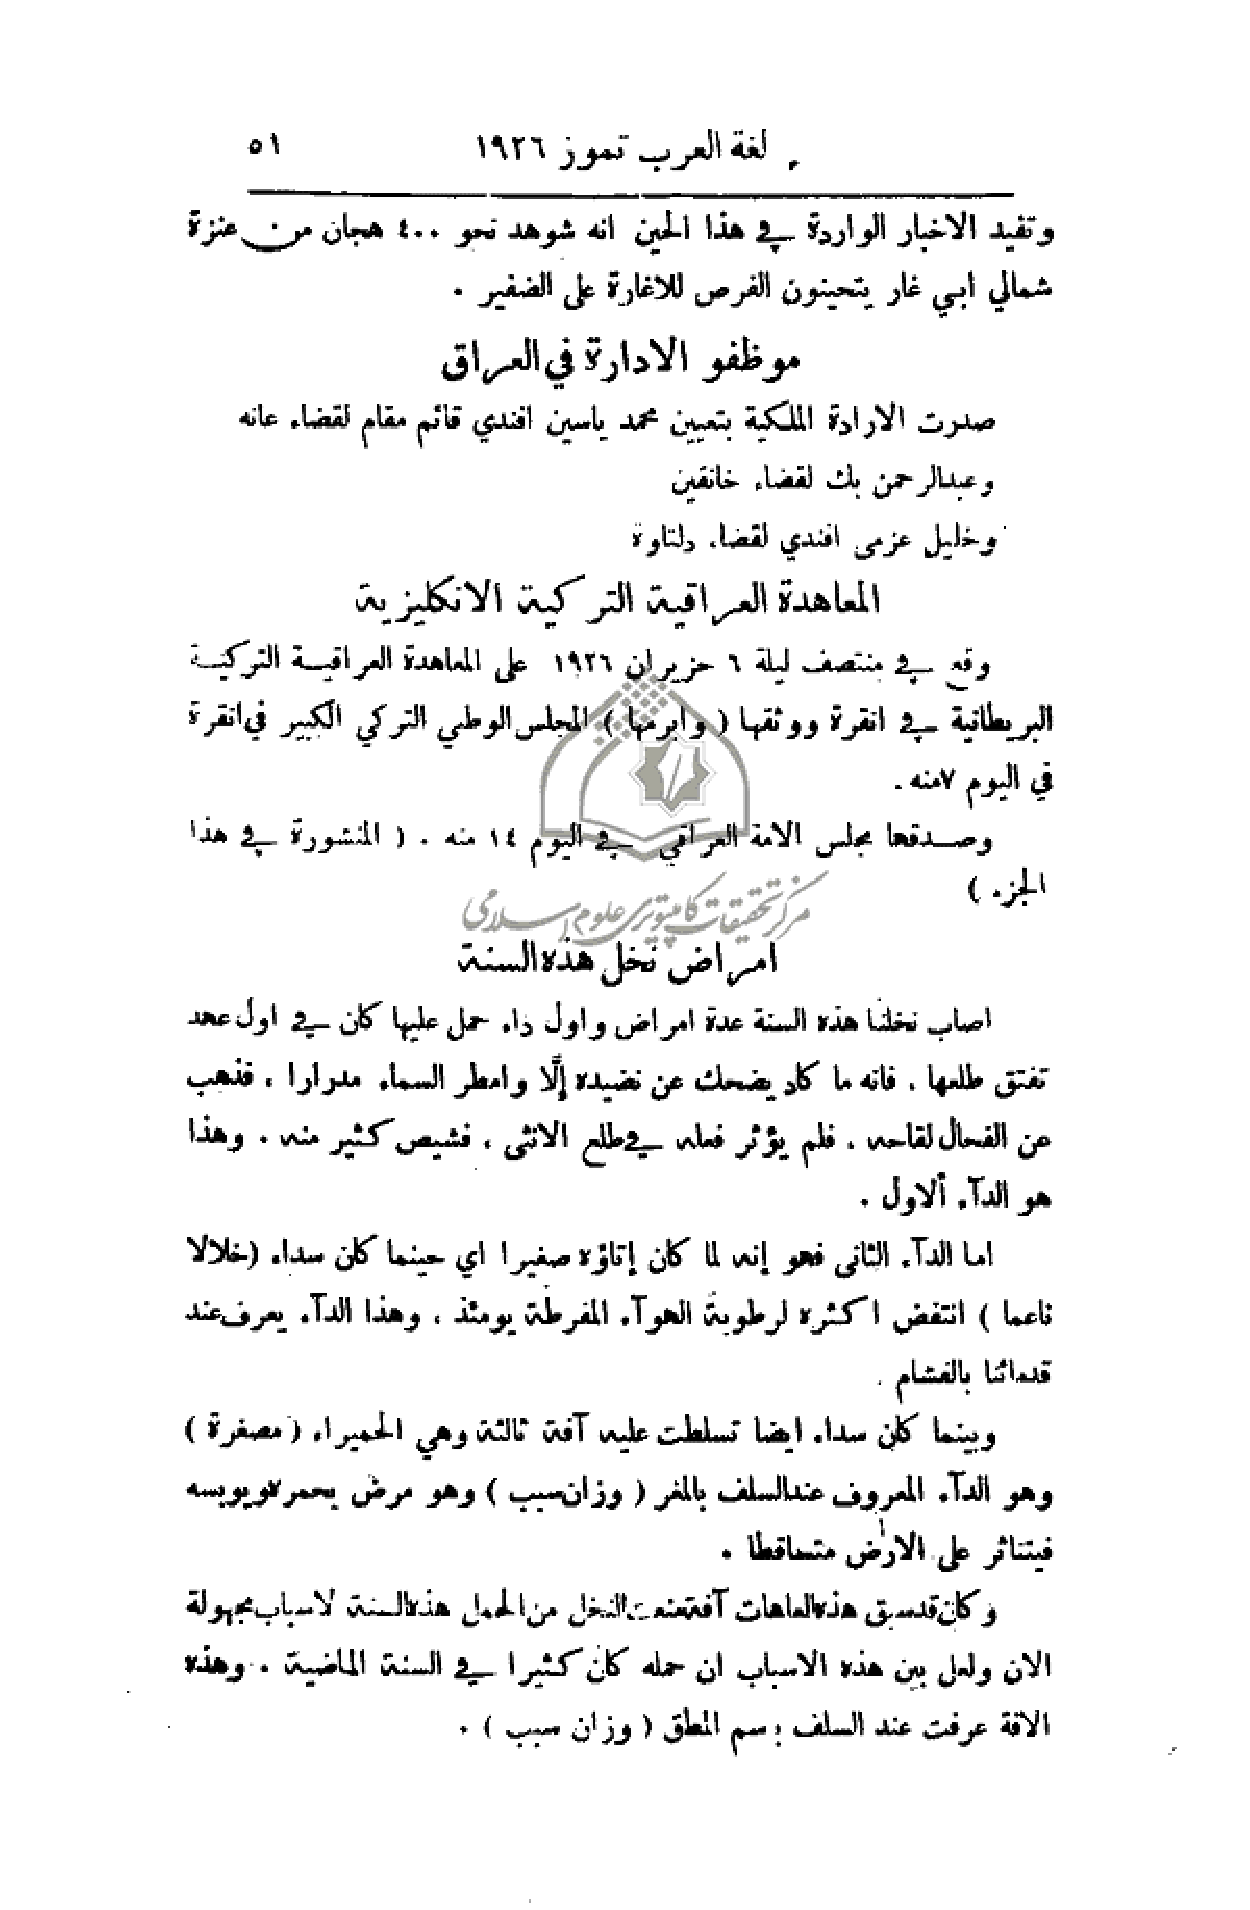 لغة العرب تموز ١٩٢٦ ٥١
وتفيد الاخبار الواردة في هذا الحين انه شوهد نحو ٤٠٠ هجان من عنزة
شمالي ابي غار يتحينون الفرص للاغارة على الضفير .
موظفو الادارة في العراق
صدرت الارادة الملكية بتعيين محمد ياسين افندي قائم مقام لقضاء عانه
وعبدالرحمن بك لقضاء خانقين
وخليل عزمي افندي لقضاء دلتاوة
المعاهدة العراقية التركية الانكليزية
وقع في منتصف ليلة ٦ حزيران ١٩٢٦ على المعاهدة العراقية التركية
البريطانية في انقرة ووثقها ( وابرمها ) المجلس الوطني التركي الكبير في انقرة
في اليوم ٧ منه .
وصدقها مجلس الامة العراقي في اليوم ١٤ منه . ( المنشورة في هذا
الجزء )
مركز تحقيقات كامپيوتری علوم اسلامی
امراض نخل هذه السنة
اصاب نخلنا هذه السنة عدة امراض واول داء حمل عليها كان في اول عهد
تفتق طلعها ، فانه ما كاد يضحك عن نضيده إلَّا وامطر السماء مدرارا ، فذهب
عن الفحال لقاحه ، فلم يؤثر فعله في طلع الانثى ، فشيص كثير منه . وهذا
هو الدآء ألاول .
اما الدآء الثاني فهو إنه لما كان إتاؤه صغيرا اي حينما كان سداء (خلالا
ناعما ) انتفض اكثره لرطوبة الهوآء المفرطة يومئذ ، وهذا الدآء يعرف عند
قدمائنا بالغشام .
وبينما كان سداء ايضا تسلطت عليه آفة ثالثة وهي الحميراء ( مصغرة )
وهو الدآء المعروف عند السلف بالمغر ( وزان سبب ) وهو مرض يحمره ويوبسه
فيتناثر على الارض متساقطا .
وكان قد سبق هذه العاهات آفة منعت النخل من الحمل هذه السنة لاسباب مجهولة
الان ولعل بين هذه الاسباب ان حمله كان كثيرا في السنة الماضية . وهذه
الافة عرفت عند السلف بسم المعلق ( وزان سبب ) .